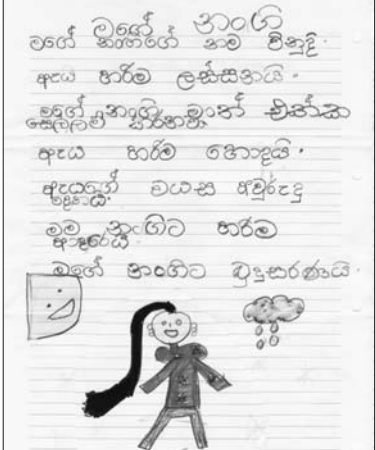 මගේ නංගි
මගේ නංගිගේ නම විනුදි.
ඇය හරිම ලස්සනයි.
මගේ නංගි මාත් එක්ක
සෙල්ලම් කරනවා.
ඇය හරිම හොඳයි.
ඇයගේ වයස අවුරුදු
දෙකයි.
මම නංගිට හරිම
ආදරෙයි.
මගේ නංගිට බුදුසරණයි.